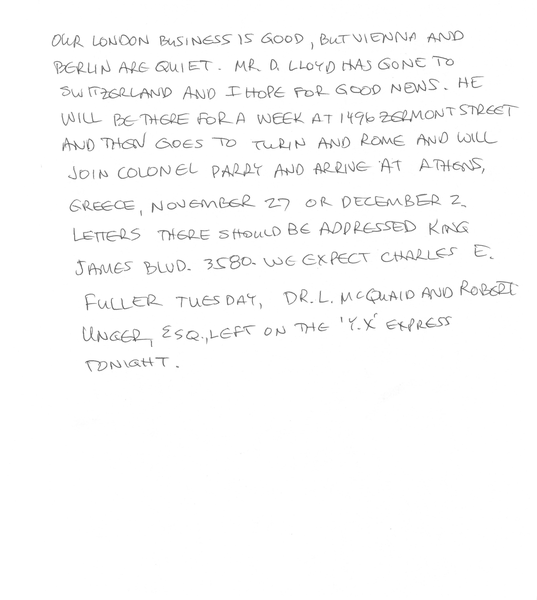 OUR LONDON BUSINESS IS GOOD, BUT VIENNA AND
BERLIN ARE QUIET. MR. D. LLOYD HAS GONE TO
SWITZERLAND AND I HOPE FOR GOOD NEWS. HE
WILL BE THERE FOR A WEEK AT 1496 ZERMONT STREET
AND THEN GOES TO TURIN AND ROME AND WILL
JOIN COLONEL PARRY AND ARRIVE AT ATHENS,
GREECE, NOVEMBER 27 OR DECEMBER 2.
LETTERS THERE SHOULD BE ADDRESSED KING
JAMES BLVD. 3580. WE EXPECT CHARLES E.
FULLER TUESDAY, DR. L. MCQUAID AND ROBERT
UNGER, ESQ., LEFT ON THE 'Y.X' EXPRESS
TONIGHT.